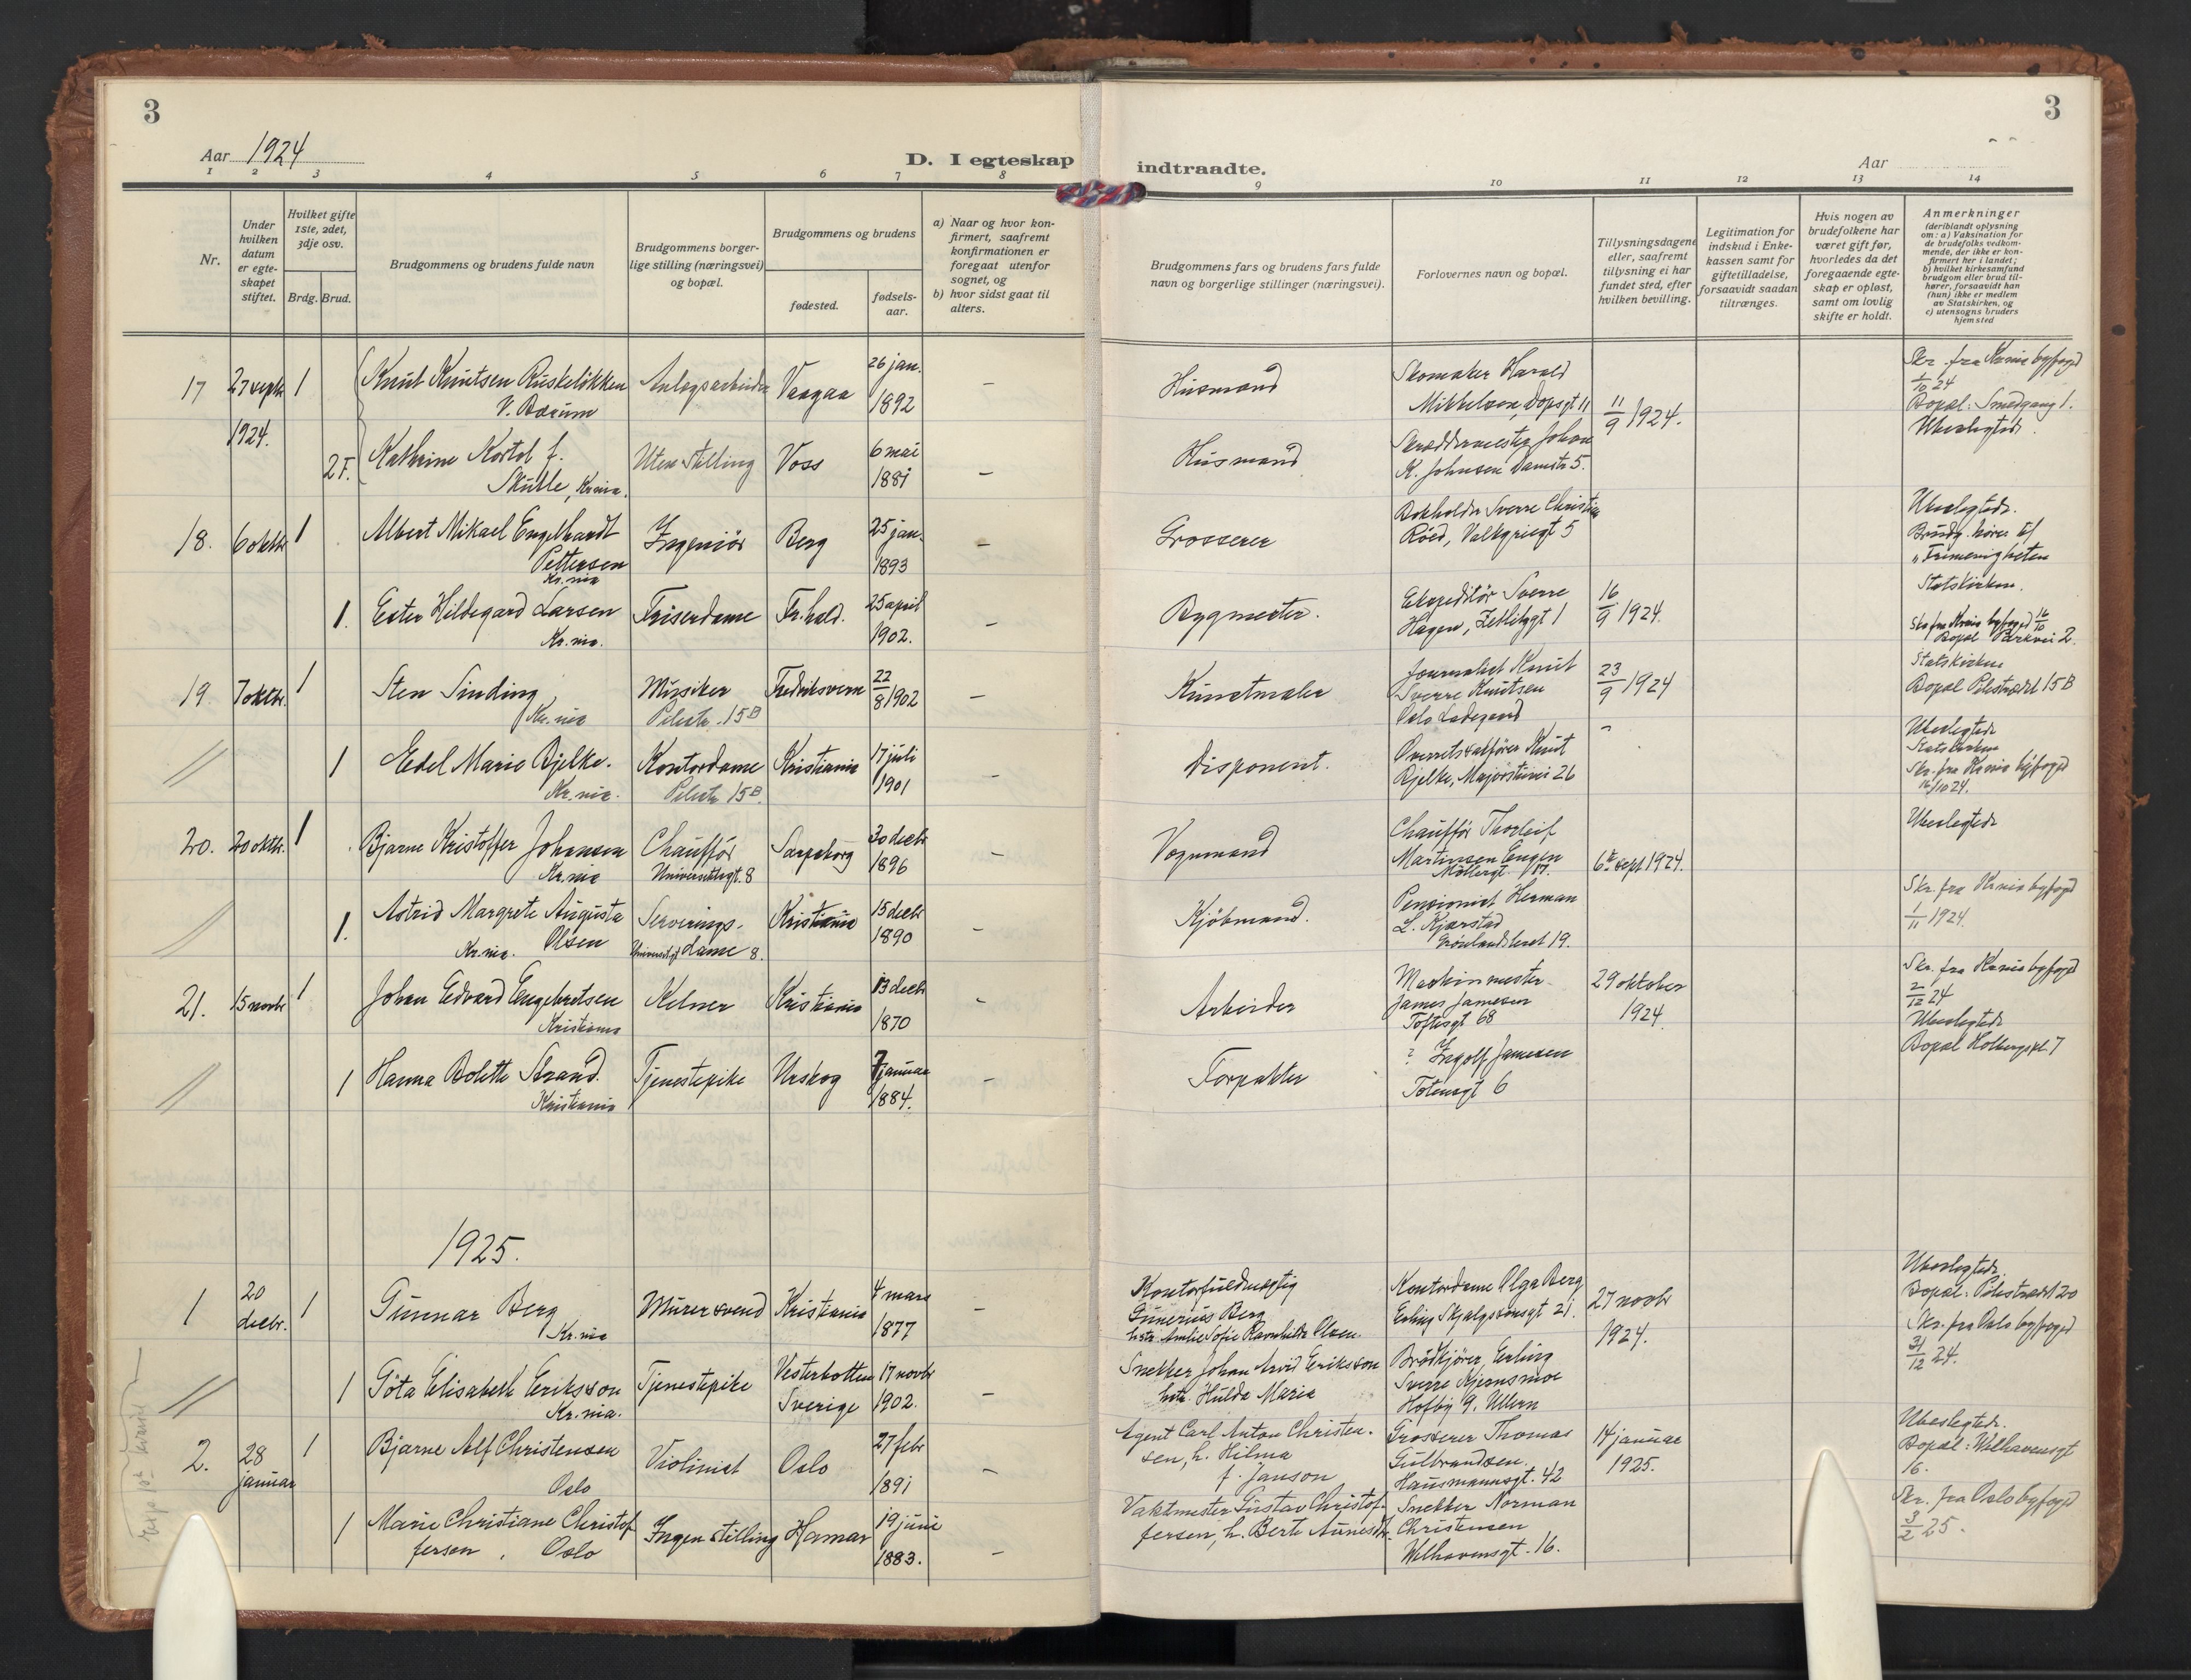 3
Aar 1924
D. I egteskap
1 2 3 4 5 6 7 8
Nr.
Under hvilken datum er egte-skapet stiftet.
Hvilket gifte 1ste, 2det, 3dje osv.
Brdg. Brud.
Brudgommens og brudens fulde navn
Brudgommens borger-lige stilling (næringsvei) og bopæl.
Brudgommens og brudens
fødested.
fødsels-aar.
a) Naar og hvor kon-firmert, saafremt konfirmationen er foregaat utenfor sognet, og
b) hvor sidst gaat til alters.
17 27 septr 1924. 1 Knut Knutsen Ruskeløkken V. Bærum Anlegsarbeider Vaagaa 26 jan. 1892 –
2 F. Kathrine Kortol f. Skutle, Kr.nia. Uten Stilling Voss 6 mai 1881 –
18. 6 oktbr 1 Albert Mikael Engelhardt Pettersen Kr.nia Ingeniør Berg 25 jan. 1893 –
1. Ester Hildegard Larsen Kr.nia. Friserdame Fr.hald. 25 april 1902. –
19. 7 oktbr. 1 Sten Sinding, Kr.nia Musiker Pilestr. 15 B Fredriksvern 22/8 1902 –
1 Edel Marie Bjelke. Kr.nia. Kontordame Pilestr 15 B. Kristiania 17 juli 1901 –
20. 20 oktbr. 1 Bjarne Kristoffer Johansen Kr.nia Chauffør Universitetsgt. 8 Sarpsborg 30 decbr 1896 –
1. Astrid Margrete Augusta Olsen Kr.nia. Serverings-dame Universitetsgt 8. Kristiania 15 decbr 1890 –
21. 15 novbr 1 Johan Edvard Engebretsen Kristiania Kelner Kristiania 13 decbr 1870 –
1 Hanna Bolette Strand. Kristiania Tjenestepike Urskog 7 januar 1884. –
1925.
1 20 decbr. 1 Gunnar Berg Kr.nia Murersvend Kristiania 4 mars 1877 –
1 Göta Elisabeth Eriksson Kr.nia. Tjenestepike Vesterbotten Sverige 17 novbr 1902. –
2. 28 januar 1 Bjarne Alf Christensen Oslo Violinist Oslo 27 febr 1891 –
1 Marie Christiane Christoffersen, Oslo Ingen stilling Hamar 19 juni 1883. –
3
indtraadte.
Aar
9 10 11 12 13 14
Brudgommens fars og brudens fars fulde navn og borgerlige stillinger (næringsvei).
Forlovernes navn og bopæl.
Tillysningsdagene eller, saafremt tillysning ei har fundet sted, efter hvilken bevilling.
Legitimation for indskud i Enke-kassen samt for giftetilladelse, forsaavidt saadan tiltrænges.
Hvis nogen av brudefolkene har været gift før, hvorledes da det foregaaende egte-skap er opløst, samt om lovlig skifte er holdt.
Anmerkninger (deriblandt oplysning om: a) Vaksination for de brudefolks vedkom-mende, der ikke er kon-firmert her i landet; b) hvilket kirkesamfund brudgom eller brud til-hører, forsaavidt han (hun) ikke er medlem av Statskirken, og c) utensogns bruders hjemsted
Husmand Skomaker Harald Mikkelsen Dopsgt 11 11/9 1924. Skr. fra Krnia byfogd 1/10 24 Bopæl: Smedgang 1. Ubeslegtede.
Husmand Skræddermester Johan K. Johnsen Damstr 5.
Grosserer Bokholder Sverre Christian Röed, Valkyriegt 5 Ubeslegtede. Brudg. hører til "Frimenigheten
Bygmester. Ekspeditør Sverre Hagen, Zetlitzgt 1 16/9 1924. Statskirken. Skr fra Krnia byfogd 16/10 Bopæl Parkvei 2.
Kunstmaler Journalist Knut Sverre Knutsen Oslo Ladegaard 23/9 1924 Statskirken Bopæl Pilestrædet 15 B
Disponent. Overretssakfører Knut Bjelke, Majorstuvei 26 Ubeslegtede Statskirken Skr. fra Krnia byfogd 16/10 24.
Vognmand Chauffør Thorleif Martinsen Engen Möllergt. 6te sept 1924. Ubeslegtede
Kjöbmand. Pensionist Herman L. Kjærstad Grönlandsleret 19. Skr. fra Krnia byfogd 1/11 1924.
Arbeider Maskinmester James Jamesen Toftesgt 68 29 oktober 1924 Skr. fra Krnia byfogd 2/12 24 Ubeslegtede Bopæl Holbergspl. 7
Forpakter ? Ingolf Jamesen Totensgt 6
Kontorfuldmægtig Gunerius Berg hstr. Amlie Sofie Ravnhilde Olsen. Kontordame Olga Berg, Erling Skjalgssonsgt 21. 27 novbr 1924. Ubeslegtede. Bopæl: Pilestrædet 20 Skr. fra Oslo byfogd 31/12 24.
Snekker Johan Arvid Eriksson hstr. Hulda Maria Brödkjører Erling Sverre Kjernsmoe Hofby 9. Ullern
Agent Carl Anton Christen-sen, h. Hilma f. Janson Grosserer Thomas Gulbrandsen. Hausmannsgt. 42 14 januar 1925. Ubeslegtede. Bopæl: Welhavensgt 16.
Vaktmester Gustav Christof-fersen, h. Berte Aunesdtr. Snekker Norman Christensen Welhavensgt. 16. Skr. fra Oslo byfogd 3/2 25.